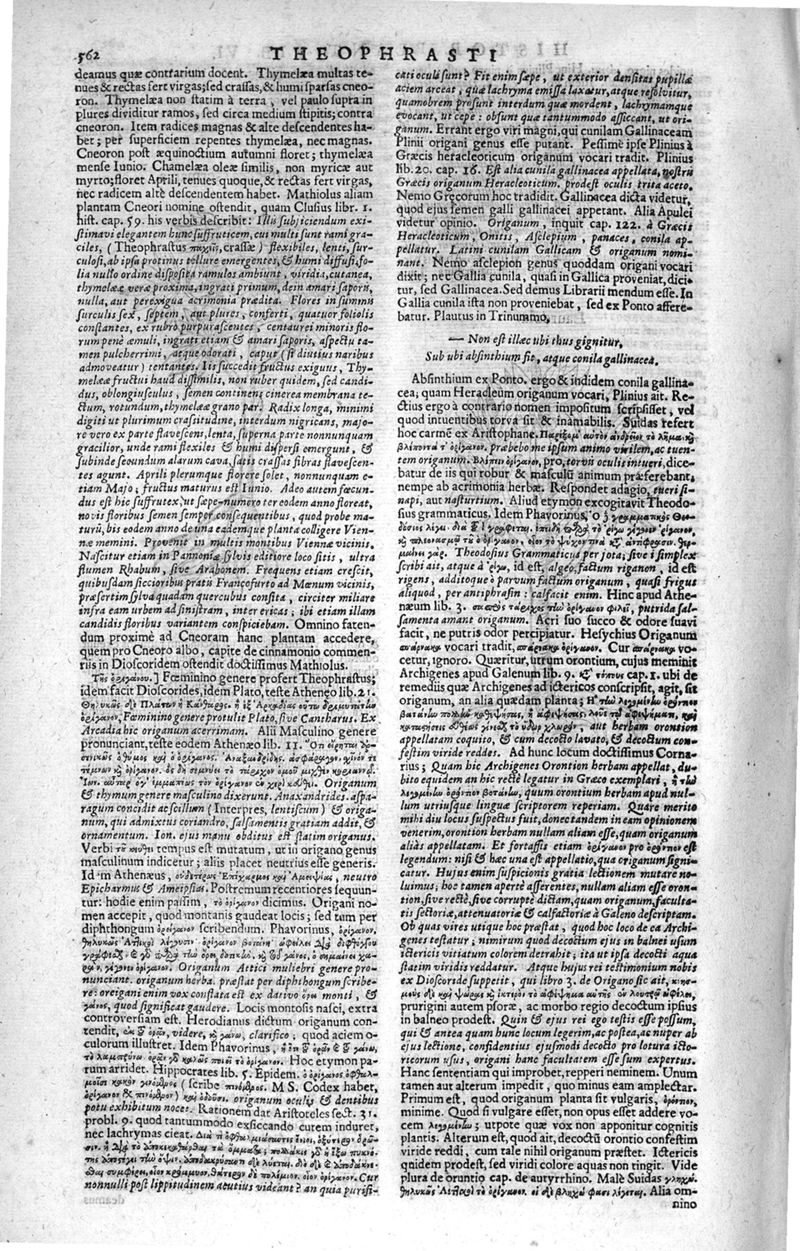 562
THEOPHRASTI
deamus quæ contrarium docent. Thymelæa multas te-
nues & rectas fert virgas; sed crassas, & humi sparsas cneo-
ron. Thymelæa non statim à terra, vel paulo supra in
plures dividitur ramos, sed circa medium stipitis; contra
cneoron. Item radices magnas & alte descendentes ha-
bet; per superficiem repentes thymelæa, nec magnas.
Cneoron post æquinoctium autumni floret; thymelæa
mense Iunio. Chamelæa oleæ similis, non myricæ aut
myrto; floret Aprili, tenues quoque, & rectas fert virgas,
nec radicem altè descendentem habet. Mathiolus aliam
plantam Cneori nomine ostendit, quam Clusius libr. 1.
hist. cap. 59. his verbis describit: Illis subjiciendum exi-
stimavi elegantem hunc suffruticem, cui multi sunt rami gra-
ciles, (Theophrastus παχεῖς, crassæ) flexibiles, lenti, sur-
culosi, ab ipsa protinus tellure emergentes, & humi diffusi, fo-
lia nullo ordine disposita ramulos ambiunt, viridia, cutanea,
thymelææ veræ proxima, ingrati primum, dein amari saporis,
nulla, aut perexigua acrimonia prædita. Flores in summis
surculis sex, septem, aut plures, conferti, quatuor foliolis
constantes, ex rubro purpurascentes, centaurei minoris flo-
rum penè æmuli, ingrati etiam & amari saporis, aspectu ta-
men pulcherrimi, atque odorati, caput (si diutius naribus
admoveatur) tentantes. Iis succedit fructus exiguus, Thy-
melææ fructui haud dissimilis, non ruber quidem, sed candi-
dus, oblongiusculus, semen continens cinerea membrana te-
ctum, rotundum, thymelææ grano par. Radix longa, minimi
digiti ut plurimum crassitudine, interdum nigricans, majo-
re vero ex parte flavescens, lenta, superna parte nonnunquam
gracilior, unde rami flexiles & humi dispersi emergunt, &
subinde secundum alarum cava, satis crassas fibras flavescen-
tes agunt. Aprili plerumque florere solet, nonnunquam e-
tiam Majo; fructus maturus est Iunio. Adeo autem fœcun-
dus est hic suffrutex, ut sæpe-numero ter eodem anno floreat,
novis floribus semen semper consequentibus, quod probe ma-
turū, bis eodem anno de una eademque planta colligere Vien-
næ memini. Provenit in multis montibus Viennæ vicinis.
Nascitur etiam in Pannoniæ sylvis editiore loco sitis, ultra
flumen Rhabum, sive Arabonem. Frequens etiam crescit,
quibusdam siccioribus pratis Francfurto ad Mœnum vicinis,
præsertim sylva quadam quercubus consita, circiter miliare
infra eam urbem ad sinistram, inter ericas; ibi etiam illam
candidis floribus variantem conspiciebam. Omnino faten-
dum proximè ad Cneoram hanc plantam accedere,
quem pro Cneoro albo, capite de cinnamomo commen-
riis in Dioscoridem ostendit doctissimus Mathiolus.
Τῆς ὀριγάνου.] Fœminino genere profert Theophrastus;
idem facit Dioscorides, idem Plato, teste Atheneo lib. 2.
Fœminino genere protulit Plato, sive Cantharus. Ex
Arcadia hic origanum acerrimam. Alii Masculino genere
pronunciant, teste eodem Athenæo lib. 11.
Origanum
& thymum genere masculino dixerunt. Anaxandrides. aspa-
ragum concidit ac scillum (Interpres, lentiscum) & origa-
num, qui admixtus coriandro, salsamentis gratiam addit, &
ornamentum. Ion. ejus manu obditus est statim origanus.
tempus est mutatum, ut in origano genus
masculinum indicetur; aliis placet neutrius esse generis.
Id m Athenæus, neutro
Epicharmus & Ameipsias. Postremum recentiores sequun-
tur: hodie enim passim, τὸ ὀρίγανον dicimus. Origani no-
men accepit, quod montanis gaudeat locis; sed tum per
diphthongum ὀρείγανον scribendum. Phavorinus,
Origanum Attici muliebri genere pro-
nunciant. origanum herba. præstat per diphthongum scribe-
re: oreigani enim vox conflata est ex dativo ὄρει monti, &
γάνος, quod significat gaudere. Locis montosis nasci, extra
controversiam est. Herodianus dictum origanum con-
tendit, videre, clarifico, quod aciem o-
culorum illustret. Idem Phavorinus,
Hoc etymon pa-
rum arridet. Hippocrates lib. 5. Epidem.
(scribe πινόμενος. M S. Codex habet,
origanum oculis & dentibus
potu exhibitum nocet. Rationem dat Aristoteles sect. 31.
probl. 9. quod tantummodo exsiccando eorum induret,
nec lachrymas cieat.
Cur
nonnulli post lippitudinem acutius videant? an quia purifi-
cati oculi sunt? Fit enim sæpe, ut exterior densitas pupillæ
aciem arceat, quæ lachryma emissa laxatur, atque resolvitur,
quamobrem prosunt interdum quæ mordent, lachrymamque
evocant, ut cepe: obsunt quæ tantummodo assiccant, ut ori-
ganum. Errant ergo viri magni, qui cunilam Gallinaceam
Plinii origani genus esse putant. Pessimè ipse Plinius à
Græcis heracleoticum origanum vocari tradit. Plinius
lib. 20. cap. 16. Est alia cunila gallinacea appellata, nostris
Græcis origanum Heracleoticum. prodest oculis trita aceto.
Nemo Græcorum hoc tradidit. Gallinacea dicta videtur,
quod ejus semen galli gallinacei appetant. Alia Apulei
videtur opinio. Origanum, inquit cap. 122. à Græcis
Heracleoticum, Onitis, Asclepium, panaces, conila ap-
pellatur. Latini cunilam Gallicam & origanum nomi-
nant. Nemo asclepion genus quoddam origani vocari
dixit; nec Gallica cunila, quasi in Gallica proveniat, dici-
tur, sed Gallinacea. Sed demus Librarii mendum esse. In
Gallia cunila ista non proveniebat, sed ex Ponto affere-
batur. Plautus in Trinummo,
— Non est illæc ubi thus gignitur,
Sub ubi absinthium fit, atque conila gallinacea.
Absinthium ex Ponto. ergo & indidem conila gallina-
cea; quam Heracleum origanum vocari, Plinius ait. Re-
ctius ergo à contrario nomen impositum scripsisset, vel
quod intuentibus torva sit & inamabilis. Suidas refert
hoc carmē ex Aristophane.
præbebo me ipsum animo virilem, ac tuen-
tem origanum. Βλέπειν ὀρίγανον, pro, torvis oculis intueri, dice-
batur de iis qui robur & masculū animum præferebant,
nempe ab acrimonia herbæ. Respondet adagio, tueri si-
napi, aut nasturtium. Aliud etymon excogitavit Theodo-
sius grammaticus. Idem Phavorinus,
Theodosius Grammaticus per jota; sive i simplex
scribi ait, atque à ῥίγω, id est, algeo, factum riganon, id est
rigens, additoque o parvum factum origanum, quasi frigus
aliquod, per antiphrasin: calfacit enim. Hinc apud Athe-
næum lib. 3. putrida sal-
samenta amant origanum. Acri suo succo & odore suavi
facit, ne putris odor percipiatur. Hesychius Origanum
vocari tradit, Cur vo-
cetur, ignoro. Quæritur, utrum orontium, cujus meminit
Archigenes apud Galenum lib. 9. cap. 1. ubi de
remediis quæ Archigenes ad ictericos conscripsit, agit, sit
origanum, an alia quædam planta;
aut herbam orontium
appellatam coquito, & cum decocto lavato, & decoctum con-
festim viride reddes. Ad hunc locum doctissimus Corna-
rius; Quam hic Archigenes Orontion herbam appellat, du-
bito equidem an hic recte legatur in Græco exemplari,
quum orontium herbam apud nul-
lum utriusque linguæ scriptorem reperiam. Quare merito
mihi diu locus suspectus fuit, donec tandem in eam opinionem
venerim, orontion herbam nullam aliam esse, quam origanum
aliàs appellatam. Et fortassis etiam ὀρίγανον pro ὀρόντιον est
legendum: nisi & hæc una est appellatio, qua origanum signifi-
catur. Hujus enim suspicionis gratia lectionem mutare no-
luimus; hoc tamen aperte asserentes, nullam aliam esse oron-
tion, sive rectè, sive corruptè dictam, quam origanum, faculta-
tis sectoriæ, attenuatoriæ & calfactoriæ à Galeno descriptam.
Ob quas vires utique hoc præstat, quod hoc loco de ea Archi-
genes testatur; nimirum quod decoctum ejus in balnei usum
ictericis vitiatum colorem detrahit; ita ut ipsa decocti aqua
statim viridis reddatur. Atque hujus rei testimonium nobis
ex Dioscoride suppetit, qui libro 3. de Origano sic ait,
prurigini autem psoræ, ac morbo regio decoctum ipsius
in balneo prodest. Quin & ejus rei ego testis esse possum,
qui & antea quam hunc locum legerim, ac postea, ac nuper ab
ejus lectione, confidentius ejusmodi decocto pro lotura icte-
ricorum usus, origani hanc facultatem esse sum expertus.
Hanc sententiam qui improbet, repperi neminem. Unum
tamen aut alterum impedit, quo minus eam amplectar.
Primum est, quod origanum planta sit vulgaris, ὀρόντιον,
minime. Quod si vulgare esset, non opus esset addere vo-
cem λεγομένων; utpote quæ vox non apponitur cognitis
plantis. Alterum est, quod ait, decoctū orontio confestim
viride reddi, cum tale nihil origanum præstet. Ictericis
quidem prodest, sed viridi colore aquas non tingit. Vide
plura de orontio cap. de autyrrhino. Malè Suidas
Alia om-
nino